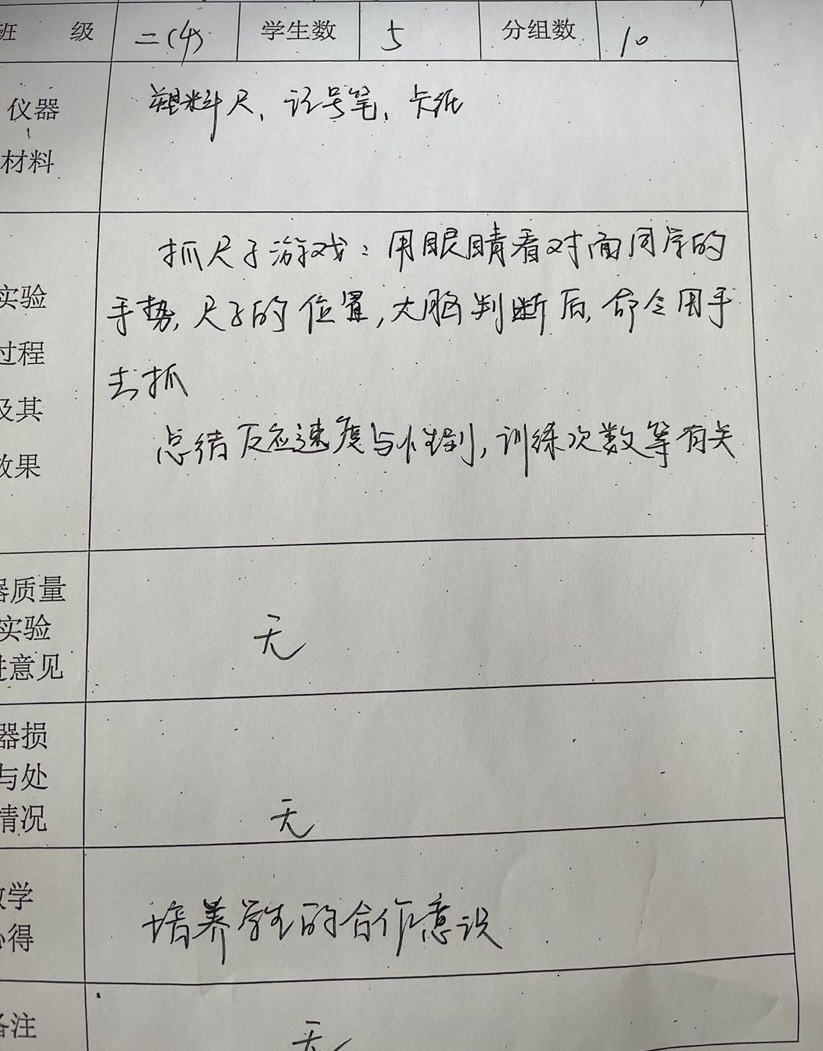 班 级 二(4) 学生数 5 分组数 10
仪器 塑料尺、记号笔、卡纸
材料
抓尺子游戏：用眼睛看对面同学的
实验 手势，尺子的位置，大脑判断后，命令用手
过程 去抓
及其 总结反应速度与性别，训练次数等有关
效果
器质量
实验 无
进意见
器损
与处
情况 无
教学 培养学生的合作意识
心得
备注 无